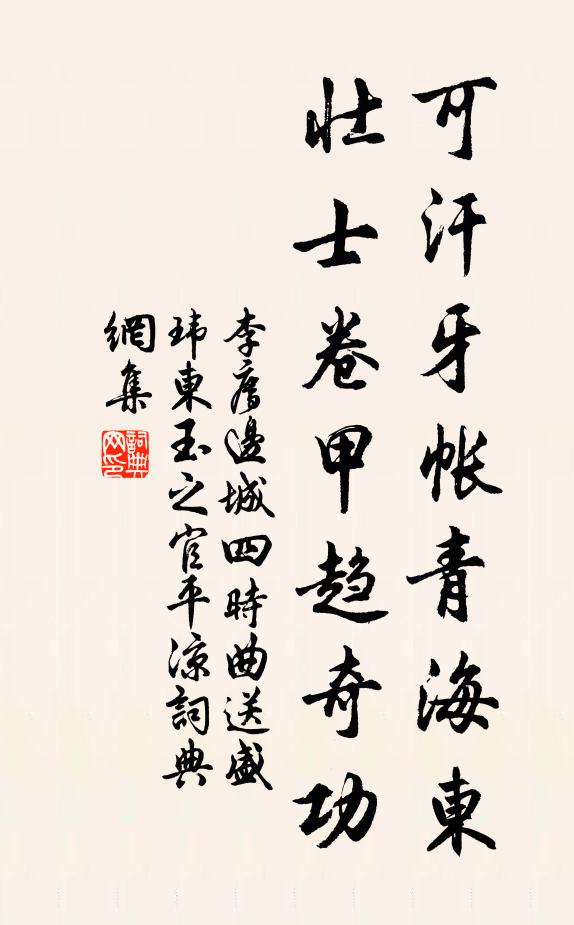 可汗牙帳青海東
壯士卷甲趨奇功
李膺邊城四時曲送盛
瑋東玉之官平涼詞典
網集
詞典
网印